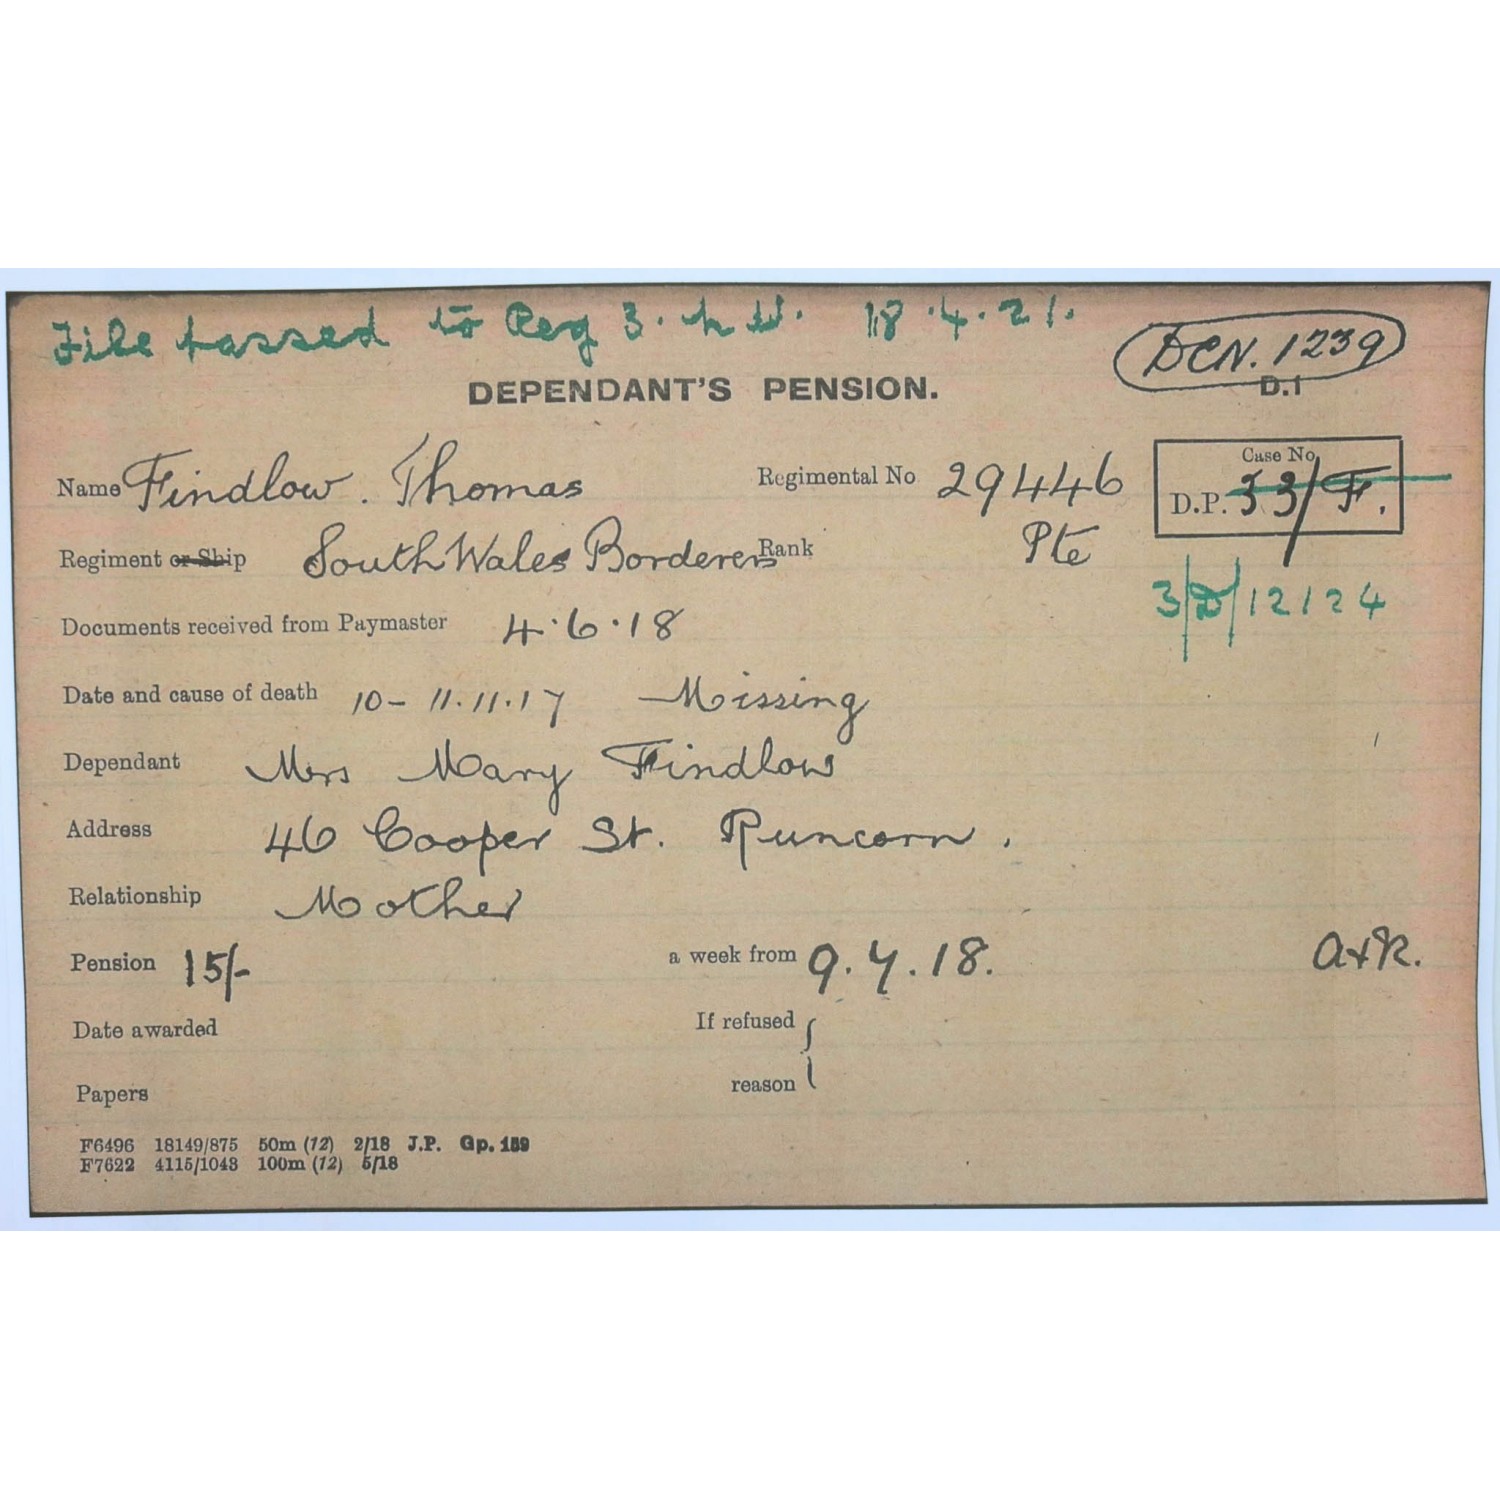 File passed to Reg 3. N.W. 18.4.21.
DCN. 1239
DEPENDANT'S PENSION. D.I
Name Findlow. Thomas Regimental No 29446
Case No
D.P. 33/F.
Regiment or Ship South Wales Borderers Rank Pte
3/D/12124
Documents received from Paymaster 4.6.18
Date and cause of death 10-11.11.17 Missing
Dependant Mrs Mary Findlow
Address 46 Cooper St. Runcorn.
Relationship Mother
Pension 15/- a week from 9.7.18.
Date awarded If refused
Papers reason
F6496 18149/875 50m (12) 2/18 J.P. Gp. 159
F7622 4115/1043 100m (12) 5/18